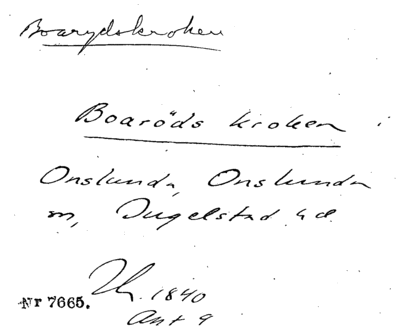 Boarydskroken
Boaröds kroken
Onslunda, Onslunda
sn, Ingelstad hd
1840
Nr 7665.
Ant 9